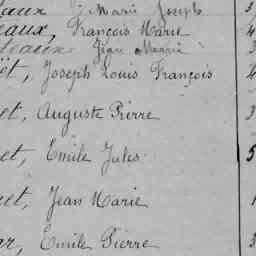 eaux, Marie Joseph 3
eaux, François Marie 4
Jean Marie 3
et, Joseph Louis François 4
et, Auguste Pierre 3
et, Emile Jules 5
et, Jean Marie 1
ar, Emile Pierre 3